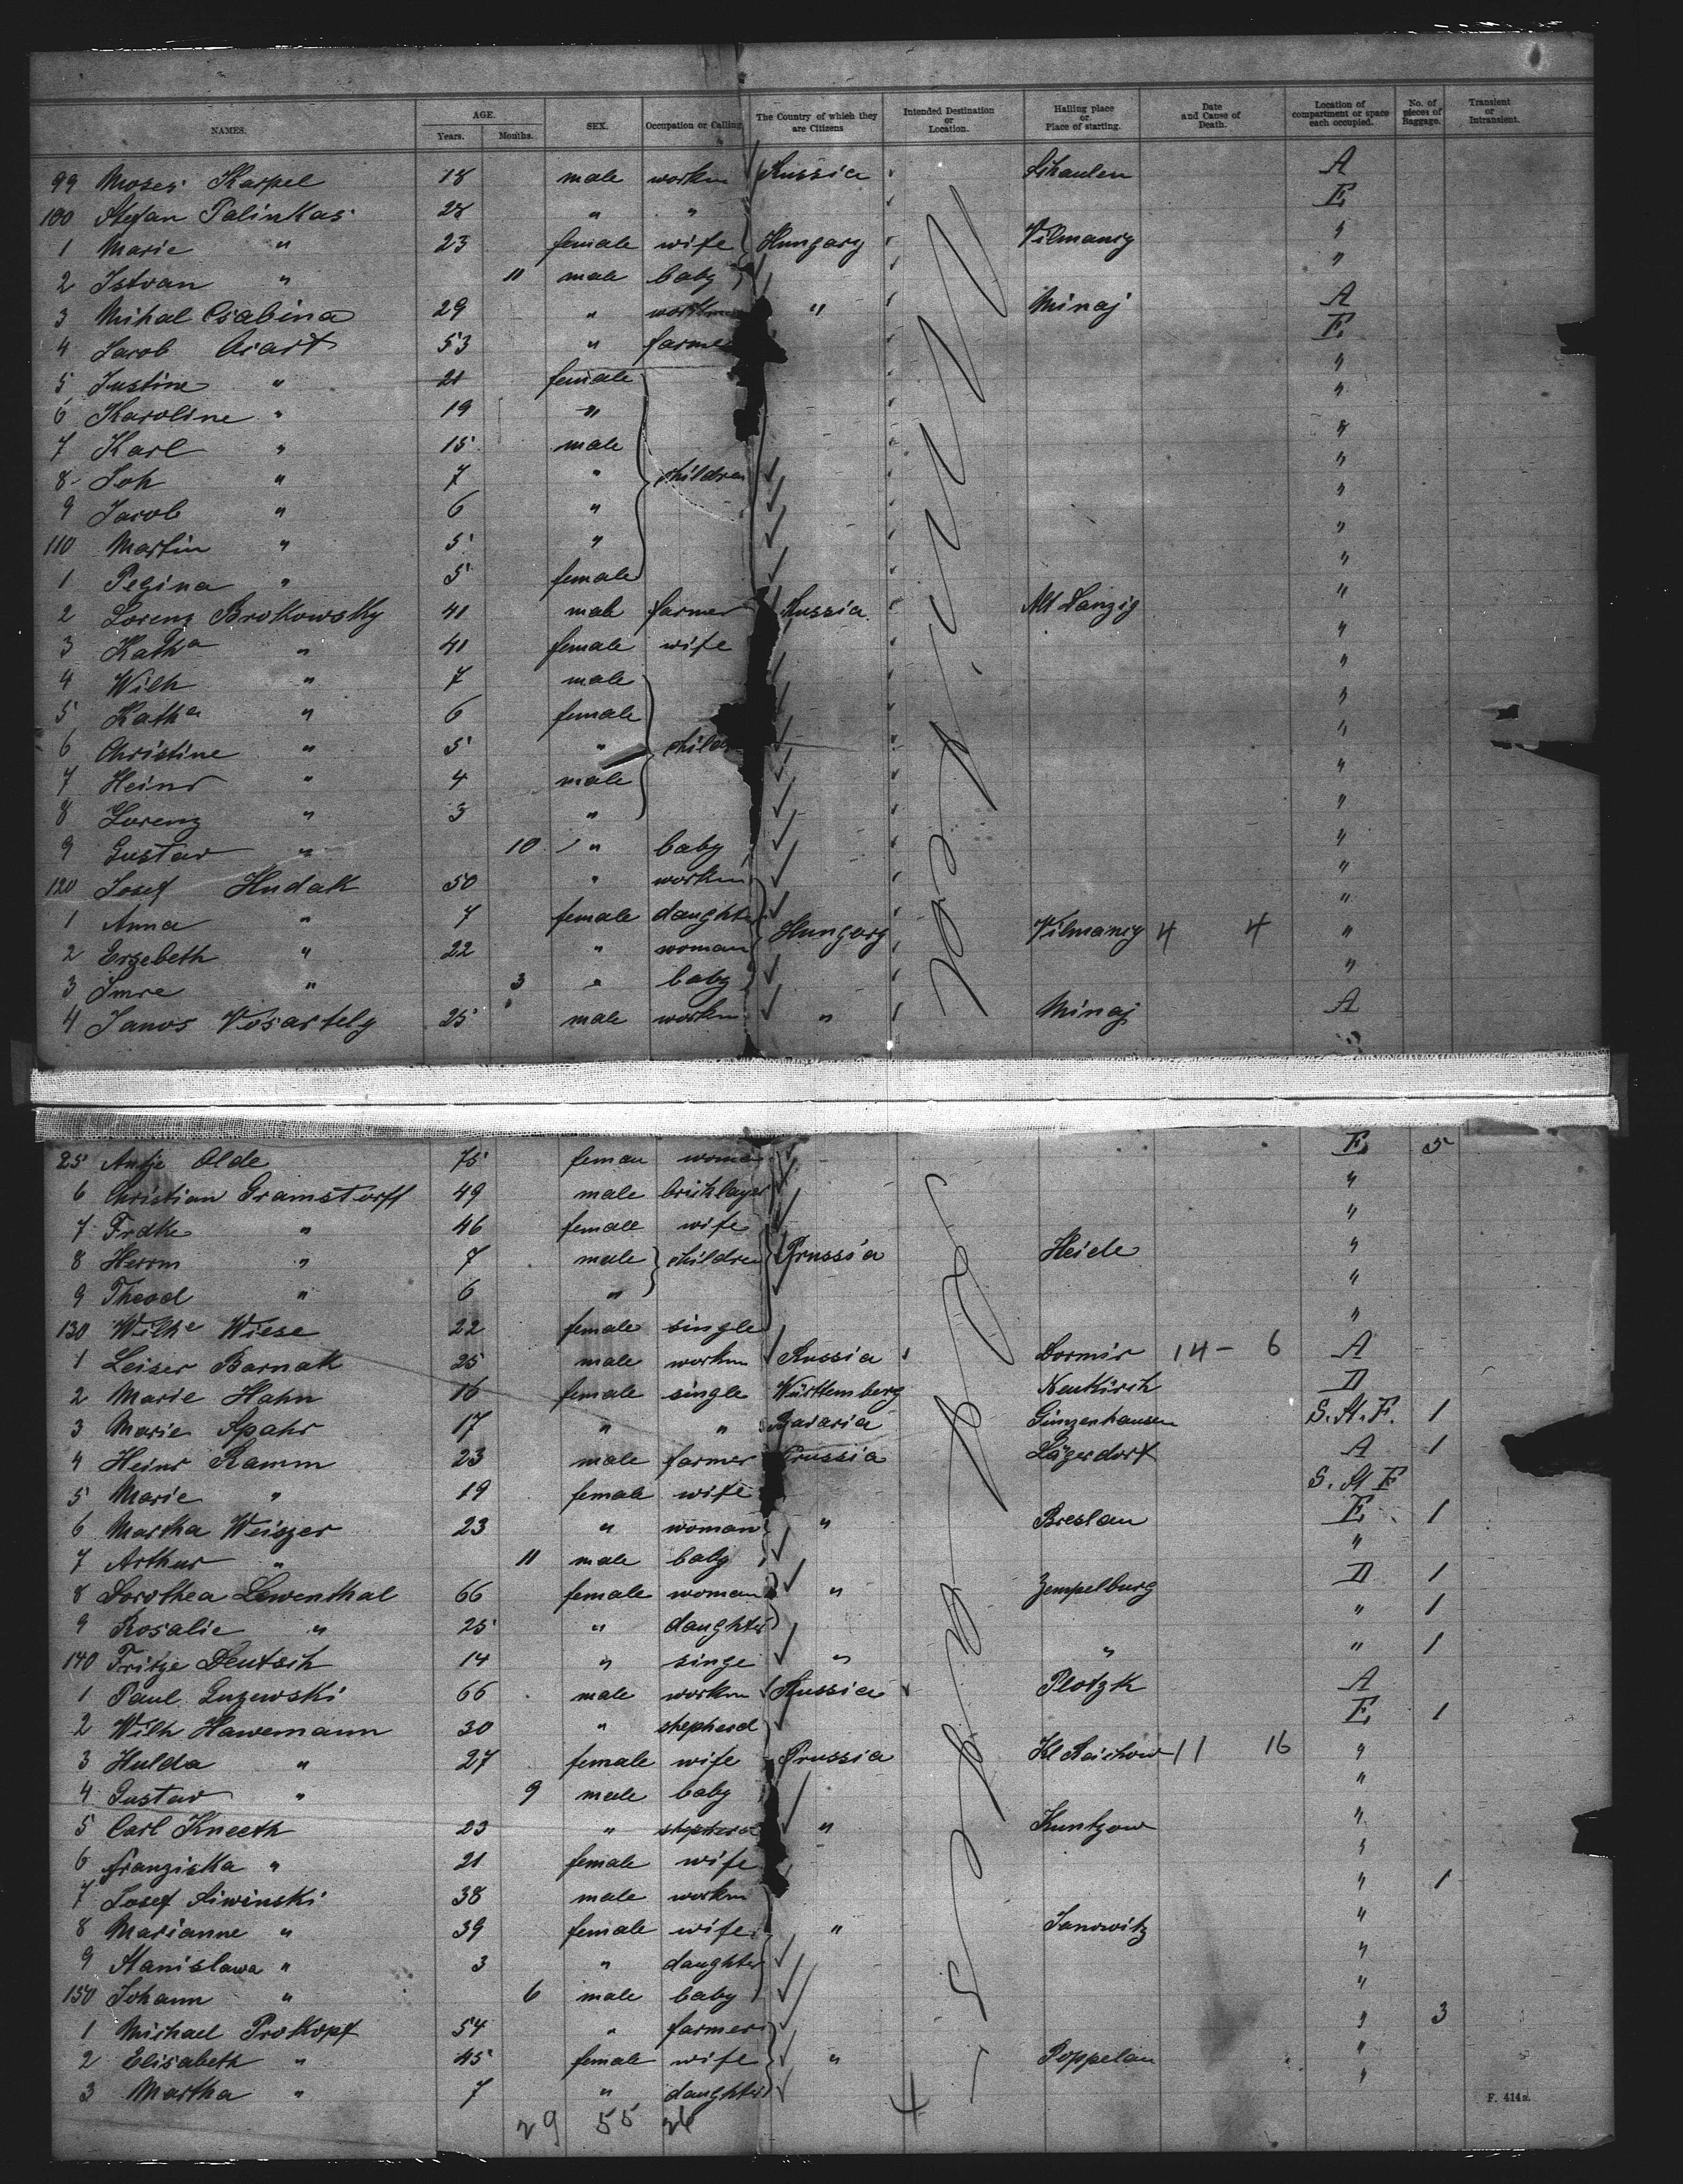 NAMES. AGE. Years. Months. SEX. Occupation or Calling The Country of which they are Citizens Intended Destination or Location. Hailing place or Place of starting. Date and Cause of Death. Location of compartment or space each occupied. No. of pieces of Baggage. Transient or Intransient.
99 Moses Karpel 18 male workm Russia Schaulen A
100 Stefan Palinkas 28 " " E
1 Marie " 23 female wife Hungary Vilmany "
2 Istvan " 11 male baby "
3 Mihal Csabina 29 " workm " Minaj A
4 Jacob 53 " farmer E
5 Justine " 21 female "
6 Karoline " 19 " "
7 Karl " 15 male "
8 Joh " 7 " children "
9 Jacob " 6 " "
110 Martin " 5 " "
1 Regina " 5 female "
2 Lorenz Brokowsky 41 male farmer Russia Alt Danzig "
3 Katha " 41 female wife "
4 Wilh " 7 male "
5 Katha " 6 female "
6 Christine " 5 " child "
7 Heinr " 4 male "
8 Lorenz " 3 " "
9 Gustav " 10 " baby "
120 Josef Hudak 50 " workm "
1 Anna " 7 female daughter Hungary "
2 Erzebeth " 22 " woman Vilmany 4 4 "
3 Imre " 3 " baby "
4 Janos 25 male workm " Minaj A
New York
25 Antje Olde 75 femau woman E 5
6 Christian Gramstorff 49 male bricklayer "
7 Frdke " 46 female wife "
8 Herm " 7 male children Prussia Heide "
9 Theod " 6 " "
130 Wilhe Wiese 22 female single "
1 Leiser Barnak 25 male workm Russia Dormir 14 - 6 A
2 Marie Hahn 16 female single Württemberg Neukirch D
3 Marie Spahr 17 " " Bavaria Gunzenhausen S. St. F. 1
4 Heinr Ramm 23 male farmer Prussia Lägerdorf A 1
5 Marie " 19 female wife S. St F
6 Martha Weiszer 23 " woman " Breslau E 1
7 Arthur " 11 male baby "
8 Dorothea Lewenthal 66 female woman " Zempelburg D 1
9 Rosalie " 25 " daughter " 1
140 Fritze Deutsch 14 " singe " " " 1
1 Paul Guzewski 66 male workm Russia Plotzk A
2 Wilh Hawemann 30 " shepherd E 1
3 Hulda " 27 female wife Prussia Kl Reichow 11 16 "
4 Gustav " 9 male baby "
5 Carl Kneeth 23 " shepherd " Kuntzow "
6 Franziska " 21 female wife "
7 Josef Siwinski 38 male workm " 1
8 Marianne " 39 female wife " Janowitz "
9 Stanislawa " 3 " daughter "
150 Johann " 6 male baby "
1 Michael Prokopf 54 " farmer " 3
2 Elisabeth " 45 female wife " Poppelau "
3 Martha " 7 " daughter "
29 55 26 4
F. 414a.